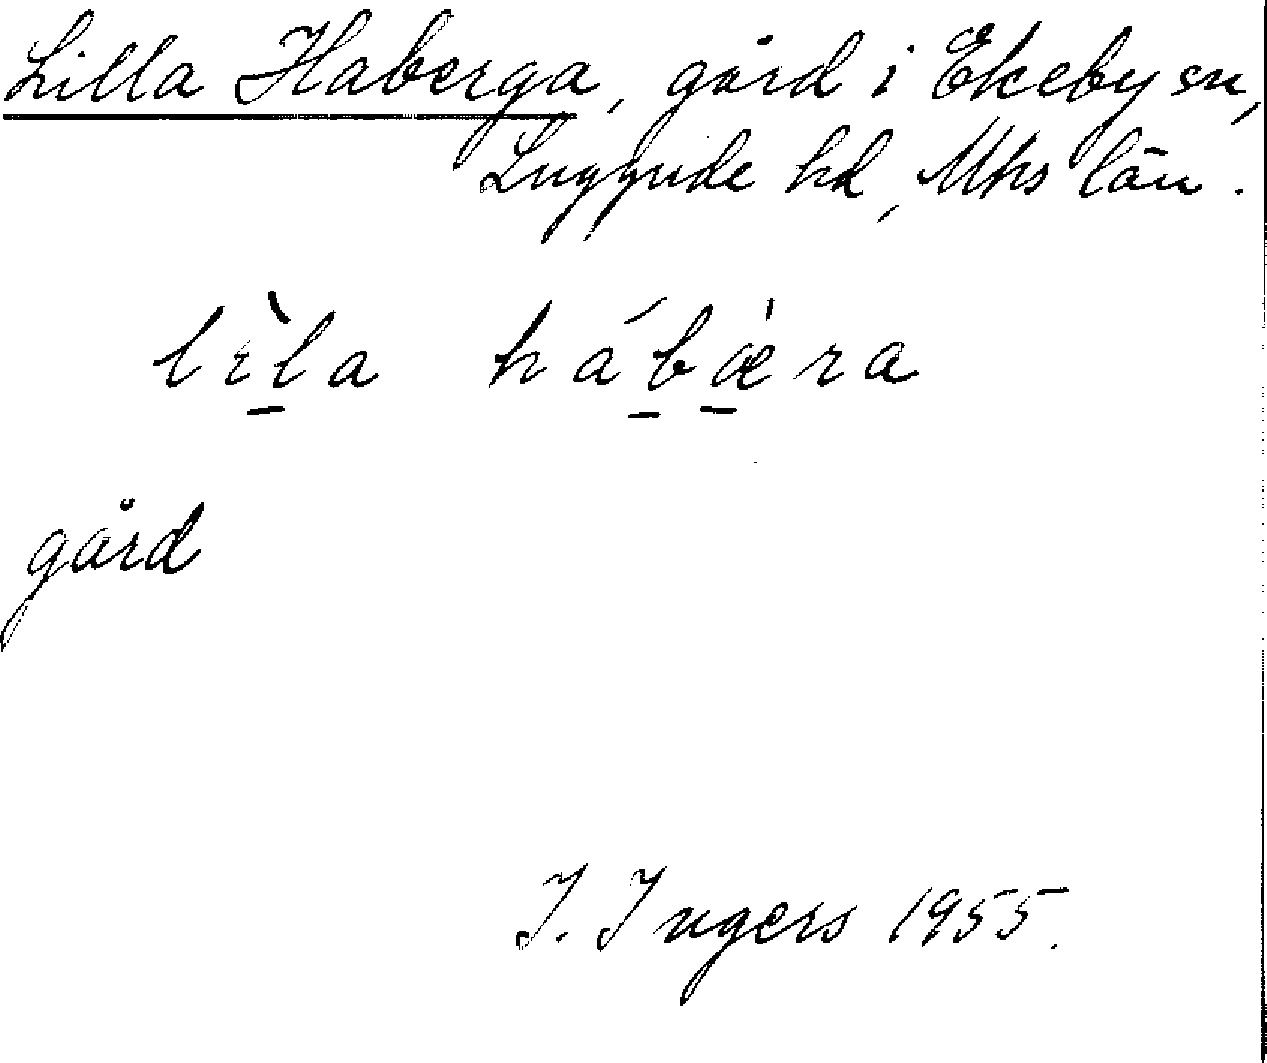 Lilla Haberga, gård i Ekeby sn,
Luggude hd, Mhs län.
lìl̠a háb̠æ̠̍ra
gård
I. Ingers 1955.